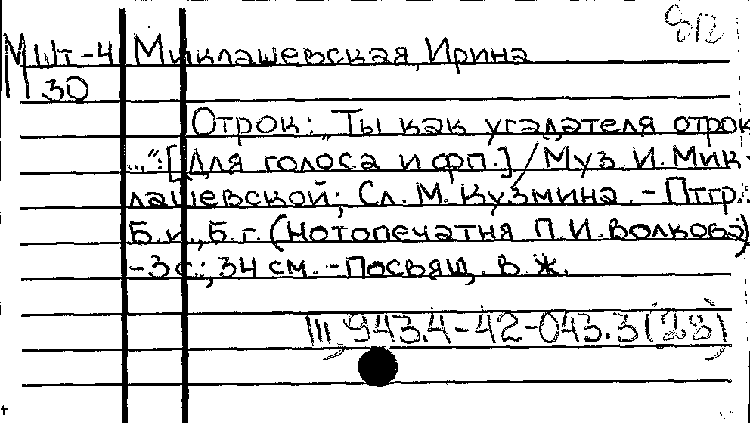 812
МШт-4 Миклашевская, Ирина
М30
Отрок: „Ты как угадателя отрок
...": [Для голоса и фп.] / Муз. И. Мик-
лашевской; Сл. М. Кузмина. - Птгр.:
Б.и., Б.г. (Нотопечатня П.И. Волкова)
- 3 с.; 34 см. - Посвящ. В.Ж.
III, 943.4-42-043.3(28)